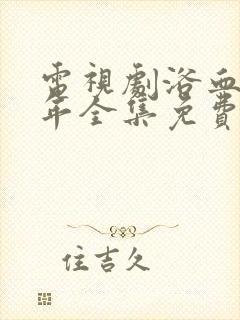 電視劇浴血
年全集免費
住吉久